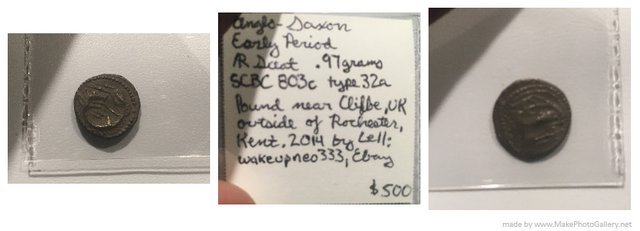 Anglo-Saxon
Early Period
AR Sceat .97grams
SCBC 803c type 32a
Found near Cliffe, UK
outside of Rochester,
Kent, 2014 by Lell:
wakeupneo333, Ebay
$500
made by www.MakePhotoGallery.net